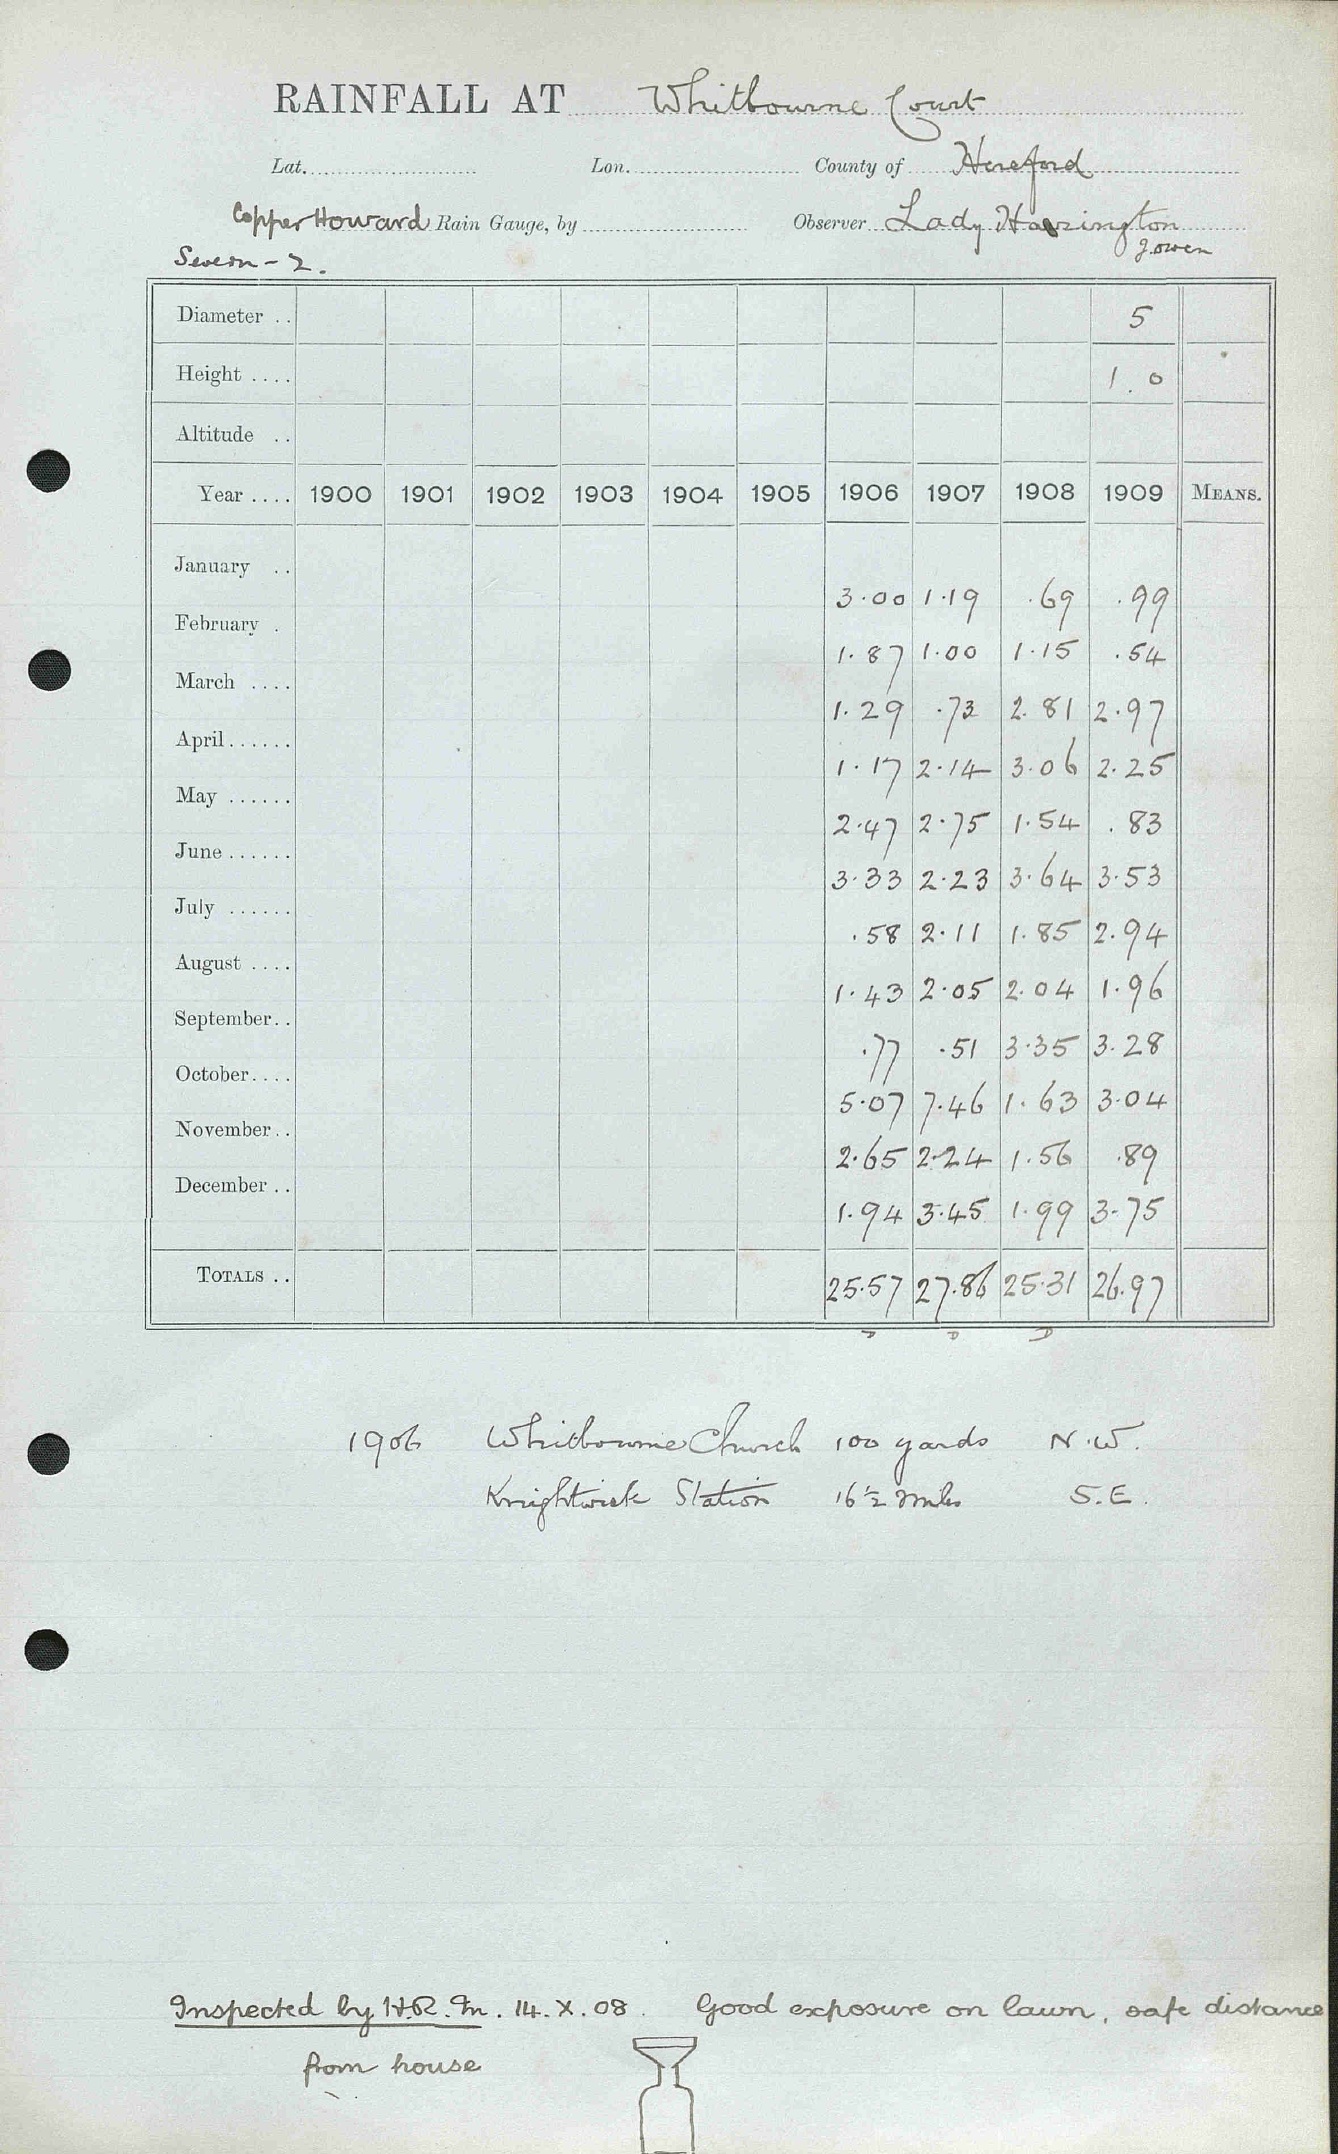 RAINFALL AT Whitbourne Court
Lat. Lon. County of Hereford
Copper Howard Rain Gauge, by Observer Lady Harrington
J. Owen
Severn - 2.
Diameter . . 5
Height . . . . 1 . 0
Altitude . .
Year . . . . 1900 1901 1902 1903 1904 1905 1906 1907 1908 1909 MEANS.
January . . 3.00 1.19 .69 .99
February . 1.87 1.00 1.15 .54
March . . . . 1.29 .73 2.81 2.97
April . . . . . . 1.17 2.14 3.06 2.25
May . . . . . . 2.47 2.75 1.54 .83
June . . . . . . 3.33 2.23 3.64 3.53
July . . . . . . .58 2.11 1.85 2.94
August . . . . 1.43 2.05 2.04 1.96
September . . .77 .51 3.35 3.28
October . . . . 5.07 7.46 1.63 3.04
November . . 2.65 2.24 1.56 .89
December . . 1.94 3.45 1.99 3.75
TOTALS . . 25.57 27.86 25.31 26.97
D D D
1906 Whitbourne Church 100 yards N.W.
Knightwick Station 16½ miles S.E.
Inspected by H.R.M. 14.X.08. Good exposure on lawn, safe distance
from house